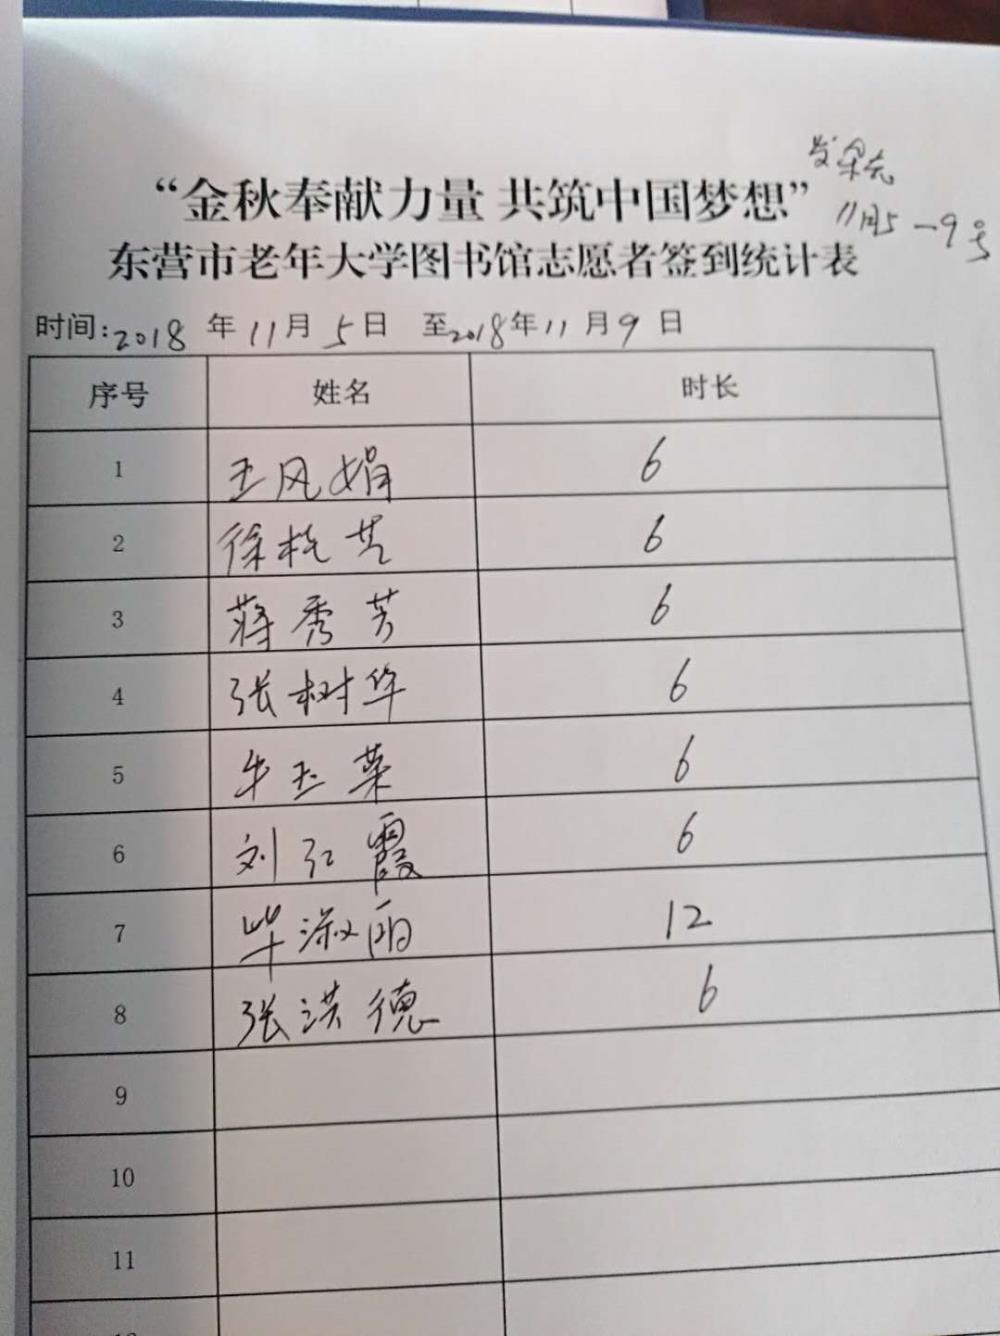 “金秋奉献力量 共筑中国梦想”
11月5-9号
东营市老年大学图书馆志愿者签到统计表
时间:2018 年 11月 5日 至2018年11月9日
序号 姓名 时长
1 王风娟 6
2 徐 6
3 蒋秀芳 6
4 张树华 6
5 牛玉菜 6
6 刘红霞 6
7 毕淑雨 12
8 张洪德 6
9
10
11